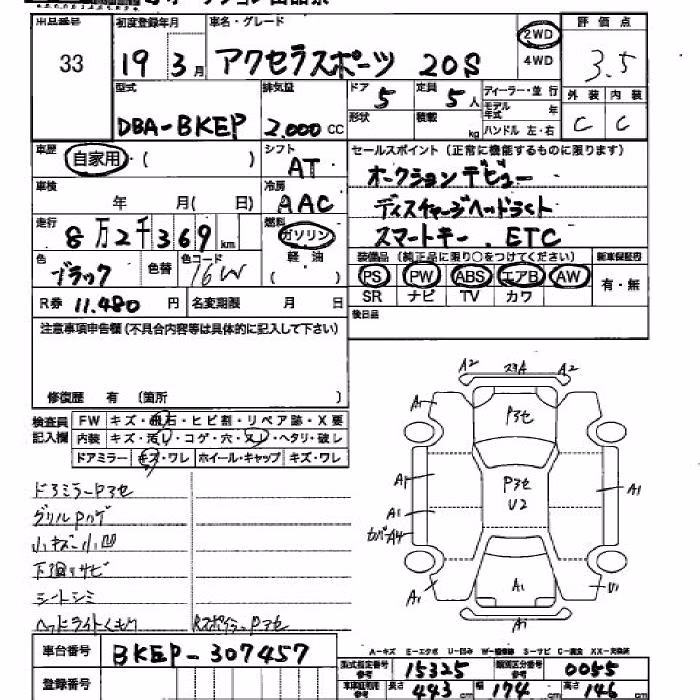 出品番号 初度登録年月 車名・グレード 2WD 4WD 評価点
33 19 3月 アクセラスポーツ 20S 3.5
型式 排気量 ドア 定員 ディーラー・並行 外装 内装
DBA-BKEP 2.000 CC 5 5人 モデル年式 年 C C
形状 積載 kg ハンドル 左・右
車歴 自家用・( ) シフト AT セールスポイント(正常に機能するものに限ります)
オークションデビュー
車検 年 月( 日) 冷房 AAC ディスチャージヘッドライト
走行 8万2千369km 燃料 ガソリン スマートキー. ETC
軽油 ( )
色 ブラック 色替 色コード 16W 装備品(純正品に限り○をつけてください) 新車保証書
PS PW ABS エアB AW 有・無
SR ナビ TV カワ
R券 11.480円 名変期限 月 日 後日品
注意事項申告欄(不具合内容等は具体的に記入して下さい)
修復歴 有 〔箇所 〕
検査員記入欄 FW キズ・飛石・ヒビ割・リペア跡・X要
内装 キズ・汚れ・コゲ・穴・スレ・ヘタリ・破レ
ドアミラー キズ・ワレ ホイール・キャップ キズ・ワレ
ドアミラーPアセ
グリルPハゲ
小キズ・小凹
下廻りサビ
シートシミ
ヘッドライトくもり Rスポイラー.Pアセ
A2 A2
A1 Pアセ A1
A1 Pアセ U2 A1
A1
カバーA4
A1 A1 U1
A1
A-キズ E-エクボ U-凹み W-補修跡 S-サビ C-腐食 XX-交換済
車台番号 BKEP-307457
型式指定番号 15325 類別区分番号 0055
登録番号 長さ 443cm 幅 174cm 高さ 146cm